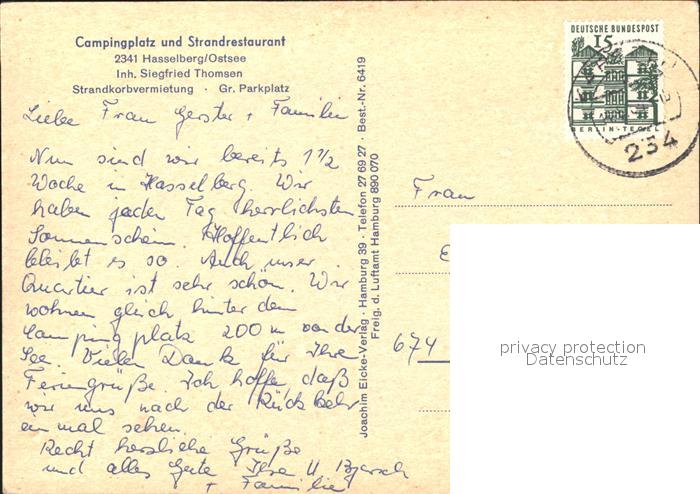 Campingplatz und Strandrestaurant
2341 Hasselberg/Ostsee
Inh. Siegfried Thomsen
Strandkorbvermietung · Gr. Parkplatz
Liebe Frau Gerster + Familie
Nun sind wir bereits 1 1/2
Woche in Hasselberg. Wir
haben jeden Tag herrlichsten
Sonnenschein. Hoffentlich
bleibt es so. Auch unser
Quartier ist sehr schön. Wir
wohnen gleich hinter dem
Campingplatz 200 m von der
See. Vielen Dank für Ihre
Feriengrüße. Ich hoffe, daß
wir uns nach der Rückkehr
einmal sehen.
Recht herzliche Grüße
und alles Gute Ihre U.
+ Familie
Joachim Eicke-Verlag · Hamburg 39 · Telefon 27 69 27 · Best.-Nr. 6419
Freig. d. Luftamt Hamburg 890 070
DEUTSCHE BUNDESPOST
15
BERLIN-TEGEL
234
Frau
E
674
privacy protection
Datenschutz